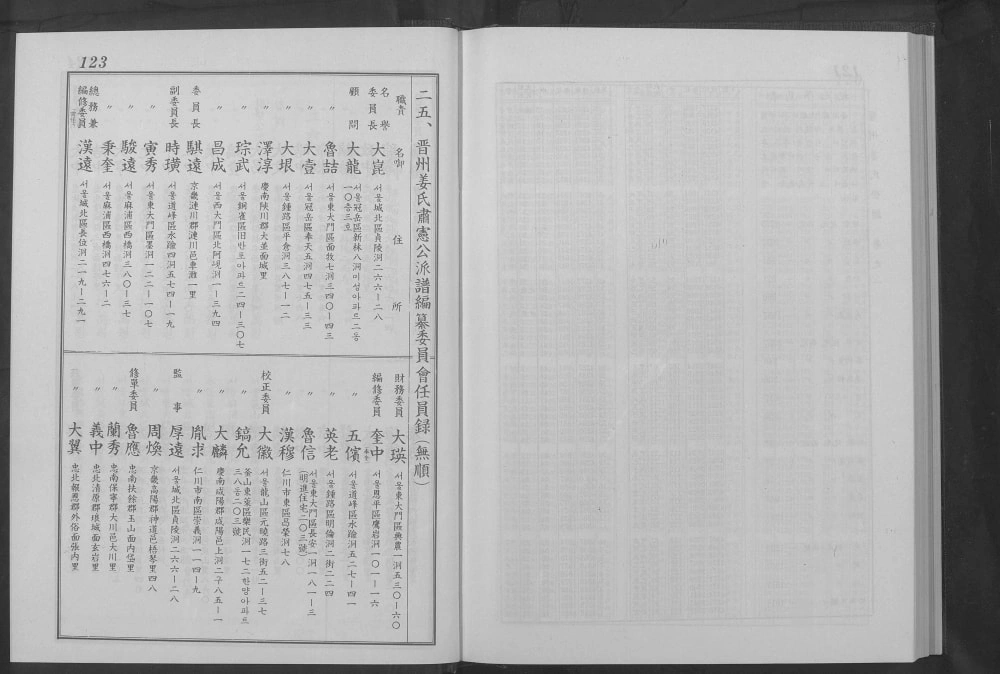 123
二五、晋州姜氏肅憲公派譜編纂委員會任員録(無順)
職責 名啣 住所
名譽委員長 大崑 서울城北區貞陵洞二六六—二八
顧問 大龍 서울冠岳區新林八洞미성아파트二동一〇층三호
〃 魯喆 서울東大門區面牧七洞三四〇—四三
〃 大壹 서울冠岳區奉天五洞四七五—三三
〃 大垠 서울鍾路區平倉洞三八七—一二
〃 澤淳 慶南陜川郡大並面城里
〃 琮武 서울銅雀區旧반포아파트二四—三〇七
〃 昌成 서울西大門區北阿峴洞一—三九四
委員長 騏遠 京畿漣川郡漣川邑車灘一里
副委員長 時璜 서울道峰區水踰四洞五七四—一九
〃 寅秀 서울東大門區墨洞一二二—一〇七
〃 駿遠 서울麻浦區西橋洞三八〇—三七
〃 秉奎 서울麻浦區西橋洞四七六—二
總務兼編修委員 漢遠 서울城北區長位洞二一九—二九一
財務委員 大瑛 서울東大門區典農一洞五三〇—六〇
編修委員 奎中 서울恩平區鷹岩洞一〇一—一六
〃 五儐 서울道峰區水踰洞五二七—四一
〃 英老 서울鍾路區明倫洞二街二二四
〃 魯信 서울東大門區長安一洞一八一—三(明進住宅二〇三號)
〃 漢穆 仁川市東區昌榮洞七八
校正委員 大徽 서울龍山區元曉路三街五二—三七
〃 鎬允 釜山東萊區樂民洞一七二한양아파트三八동二〇三號
〃 大麟 慶南咸陽郡咸陽邑上洞二구八五—一
〃 胤求 仁川市南區崇義洞一一四—九
監事 厚遠 서울城北區貞陵洞二六六—二八
〃 周煥 京畿高陽郡神道邑梧琴里四八
修單委員 魯應 忠南扶餘郡玉山面内垈里
〃 蘭秀 忠南保寧郡大川邑大川里
〃 義中 忠北清原郡琅城面玄岩里
〃 大翼 忠北報恩郡外俗面張内里